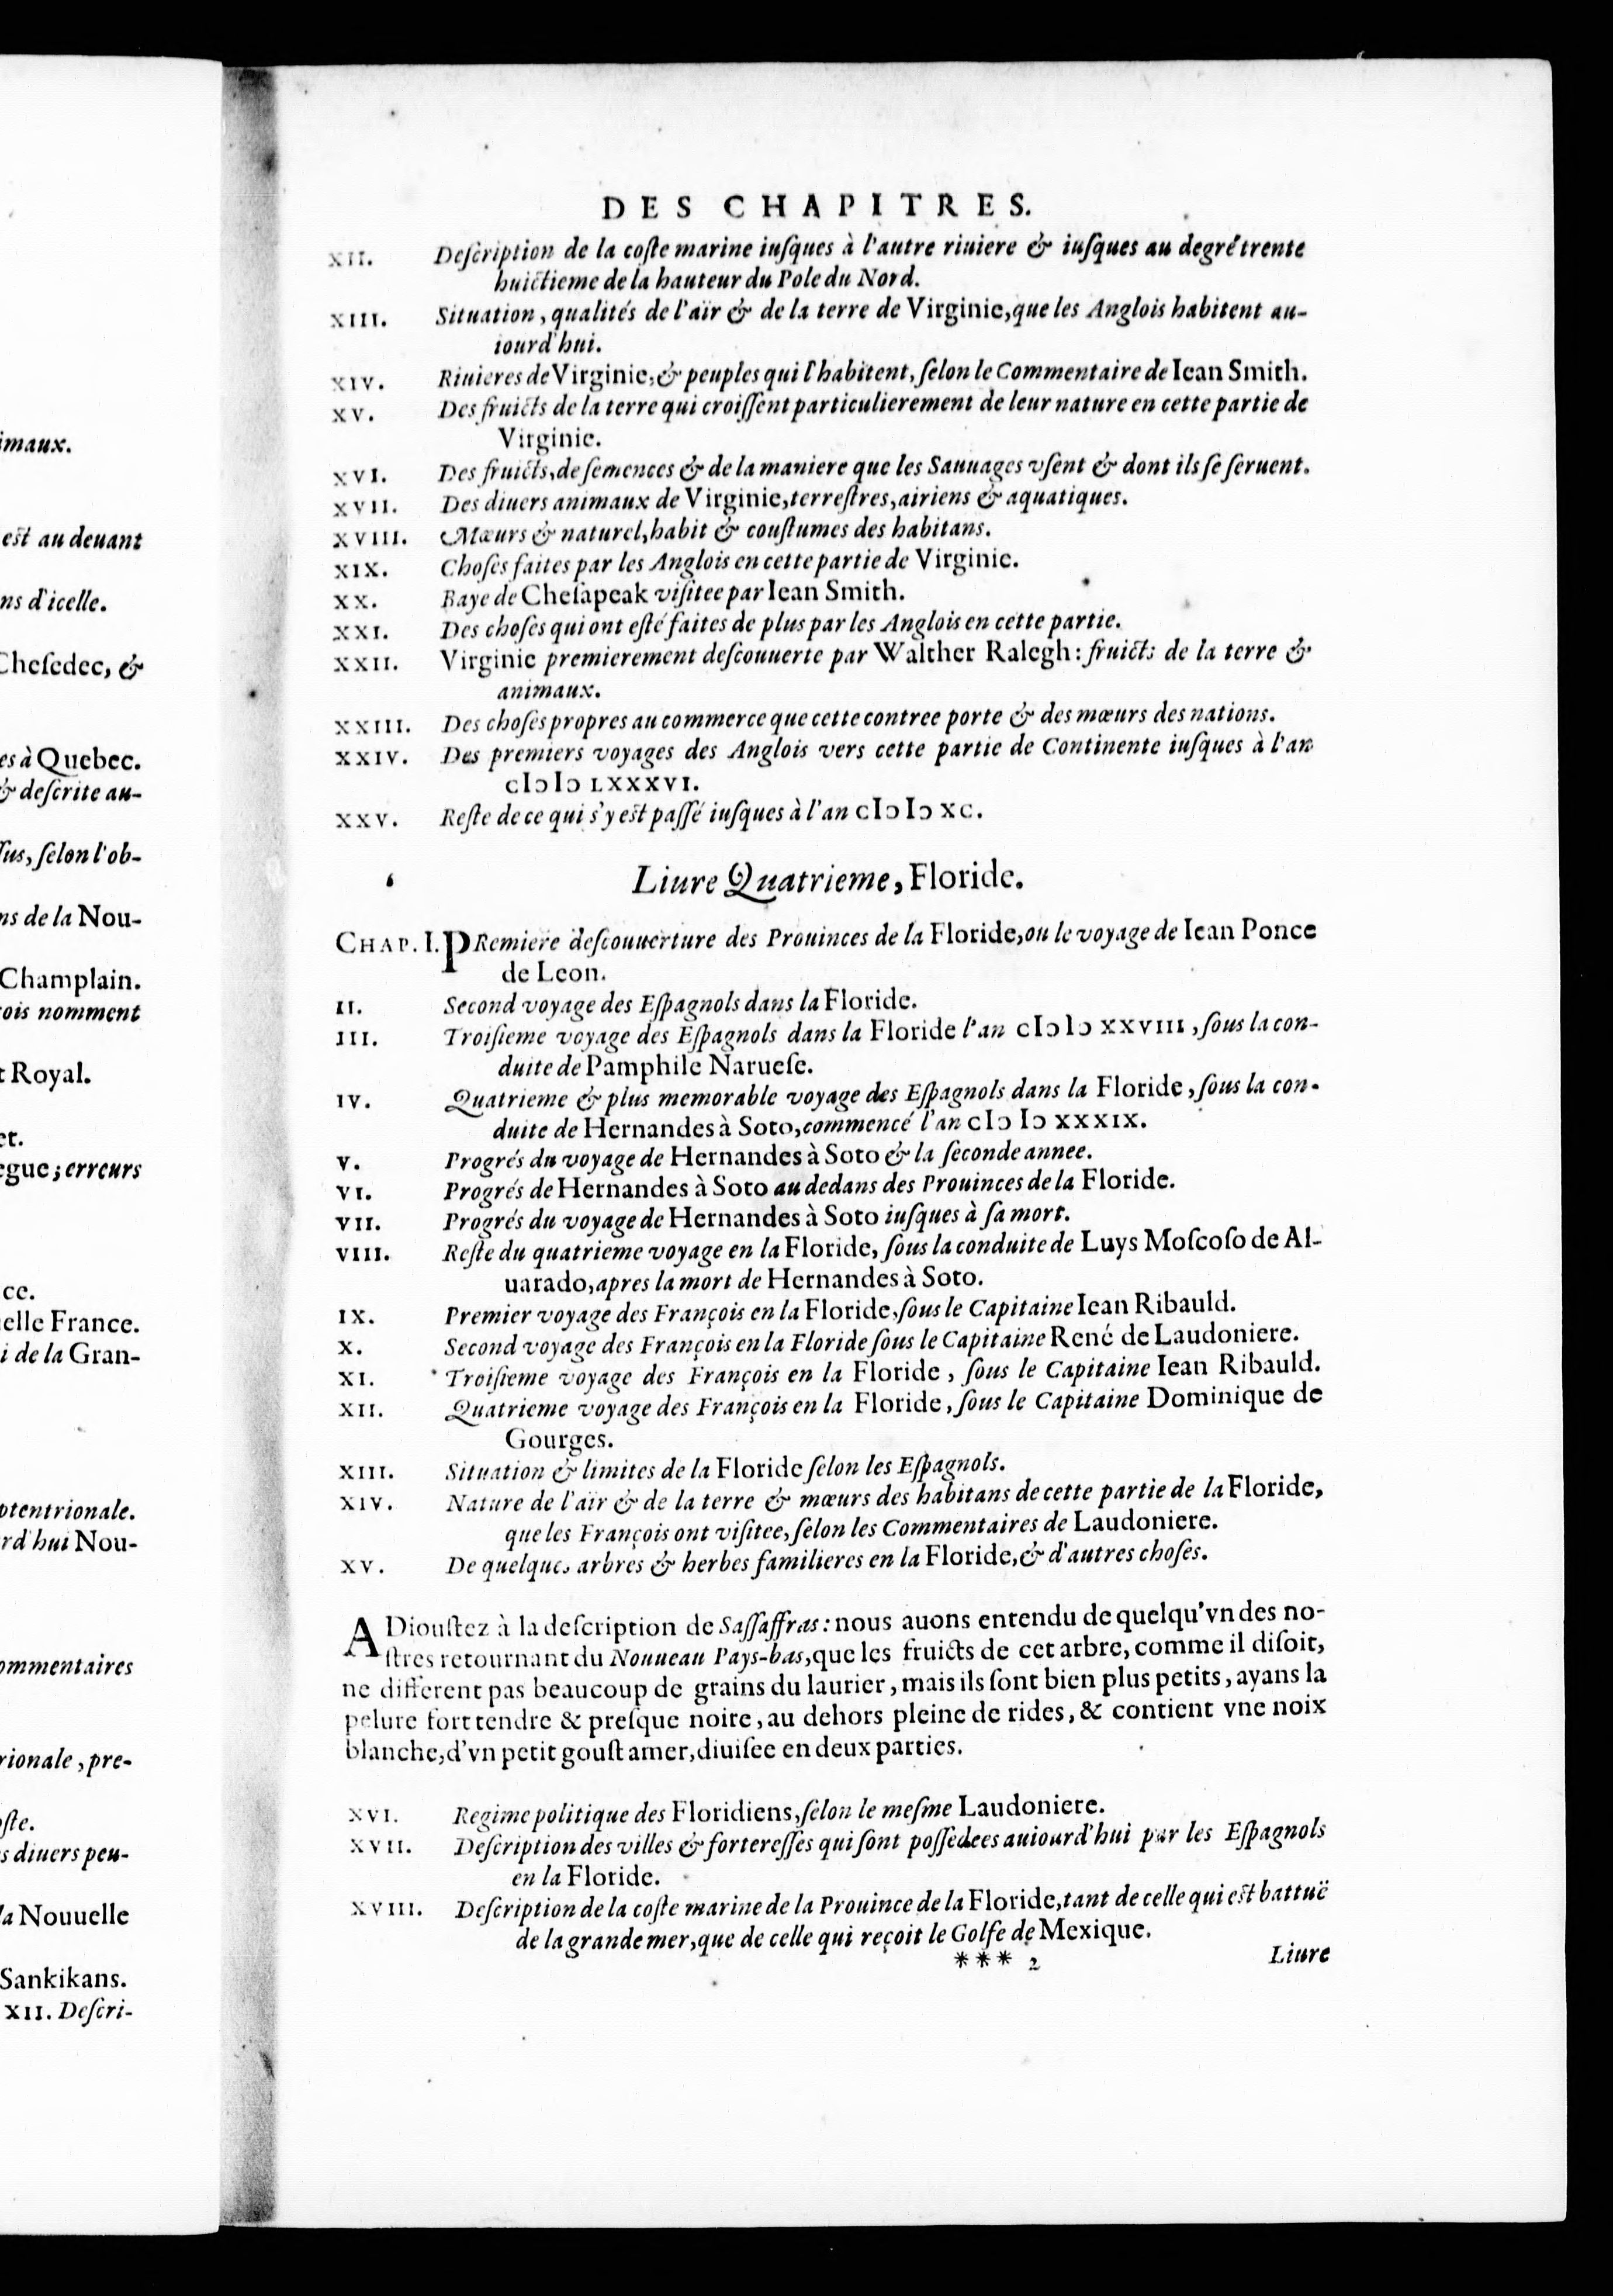 imaux.
est au deuant
ns d'icelle.
Chesedec, &
es à Quebec.
& descrite au-
sus, selon l'ob-
ns de la Nou-
Champlain.
çois nomment
t Royal.
et.
egue; erreurs
ce.
elle France.
i de la Gran-
ptentrionale.
rd'hui Nou-
ommentaires
rionale, pre-
oste.
s diuers peu-
la Nouuelle
Sankikans.
XII. Descri-
DES CHAPITRES.
XII. Description de la coste marine iusques à l'autre riuiere & iusques au degré trente
huictieme de la hauteur du Pole du Nord.
XIII. Situation, qualités de l'aïr & de la terre de Virginie, que les Anglois habitent au-
iourd'hui.
XIV. Riuieres de Virginie, & peuples qui l'habitent, selon le Commentaire de Iean Smith.
XV. Des fruicts de la terre qui croissent particulierement de leur nature en cette partie de
Virginie.
XVI. Des fruicts, de semences & de la maniere que les Sauuages vsent & dont ils se seruent.
XVII. Des diuers animaux de Virginie, terrestres, airiens & aquatiques.
XVIII. Mœurs & naturel, habit & coustumes des habitans.
XIX. Choses faites par les Anglois en cette partie de Virginie.
XX. Baye de Chesapeak visitee par Iean Smith.
XXI. Des choses qui ont esté faites de plus par les Anglois en cette partie.
XXII. Virginie premierement descouuerte par Walther Ralegh: fruicts de la terre &
animaux.
XXIII. Des choses propres au commerce que cette contree porte & des mœurs des nations.
XXIV. Des premiers voyages des Anglois vers cette partie de Continente iusques à l'an
cIↄ Iↄ LXXXVI.
XXV. Reste de ce qui s'y est passé iusques à l'an cIↄ Iↄ XC.
Liure Quatrieme, Floride.
CHAP. I. PRemiere descouuerture des Prouinces de la Floride, ou le voyage de Iean Ponce
de Leon.
II. Second voyage des Espagnols dans la Floride.
III. Troisieme voyage des Espagnols dans la Floride l'an cIↄ Iↄ XXVIII, sous la con-
duite de Pamphile Naruese.
IV. Quatrieme & plus memorable voyage des Espagnols dans la Floride, sous la con-
duite de Hernandes à Soto, commencé l'an cIↄ Iↄ XXXIX.
V. Progrés du voyage de Hernandes à Soto & la seconde annee.
VI. Progrés de Hernandes à Soto au dedans des Prouinces de la Floride.
VII. Progrés du voyage de Hernandes à Soto iusques à sa mort.
VIII. Reste du quatrieme voyage en la Floride, sous la conduite de Luys Moscoso de Al-
uarado, apres la mort de Hernandes à Soto.
IX. Premier voyage des François en la Floride, sous le Capitaine Iean Ribauld.
X. Second voyage des François en la Floride sous le Capitaine René de Laudoniere.
XI. Troisieme voyage des François en la Floride, sous le Capitaine Iean Ribauld.
XII. Quatrieme voyage des François en la Floride, sous le Capitaine Dominique de
Gourges.
XIII. Situation & limites de la Floride selon les Espagnols.
XIV. Nature de l'aïr & de la terre & mœurs des habitans de cette partie de la Floride,
que les François ont visitee, selon les Commentaires de Laudoniere.
XV. De quelques arbres & herbes familieres en la Floride, & d'autres choses.
ADioustez à la description de Sassaffras: nous auons entendu de quelqu'vn des no-
stres retournant du Nouueau Pays-bas, que les fruicts de cet arbre, comme il disoit,
ne different pas beaucoup de grains du laurier, mais ils sont bien plus petits, ayans la
pelure fort tendre & presque noire, au dehors pleine de rides, & contient vne noix
blanche, d'vn petit goust amer, diuisee en deux parties.
XVI. Regime politique des Floridiens, selon le mesme Laudoniere.
XVII. Description des villes & forteresses qui sont possedees auiourd'hui par les Espagnols
en la Floride.
XVIII. Description de la coste marine de la Prouince de la Floride, tant de celle qui est battuë
de la grande mer, que de celle qui reçoit le Golfe de Mexique.
*** 2 Liure